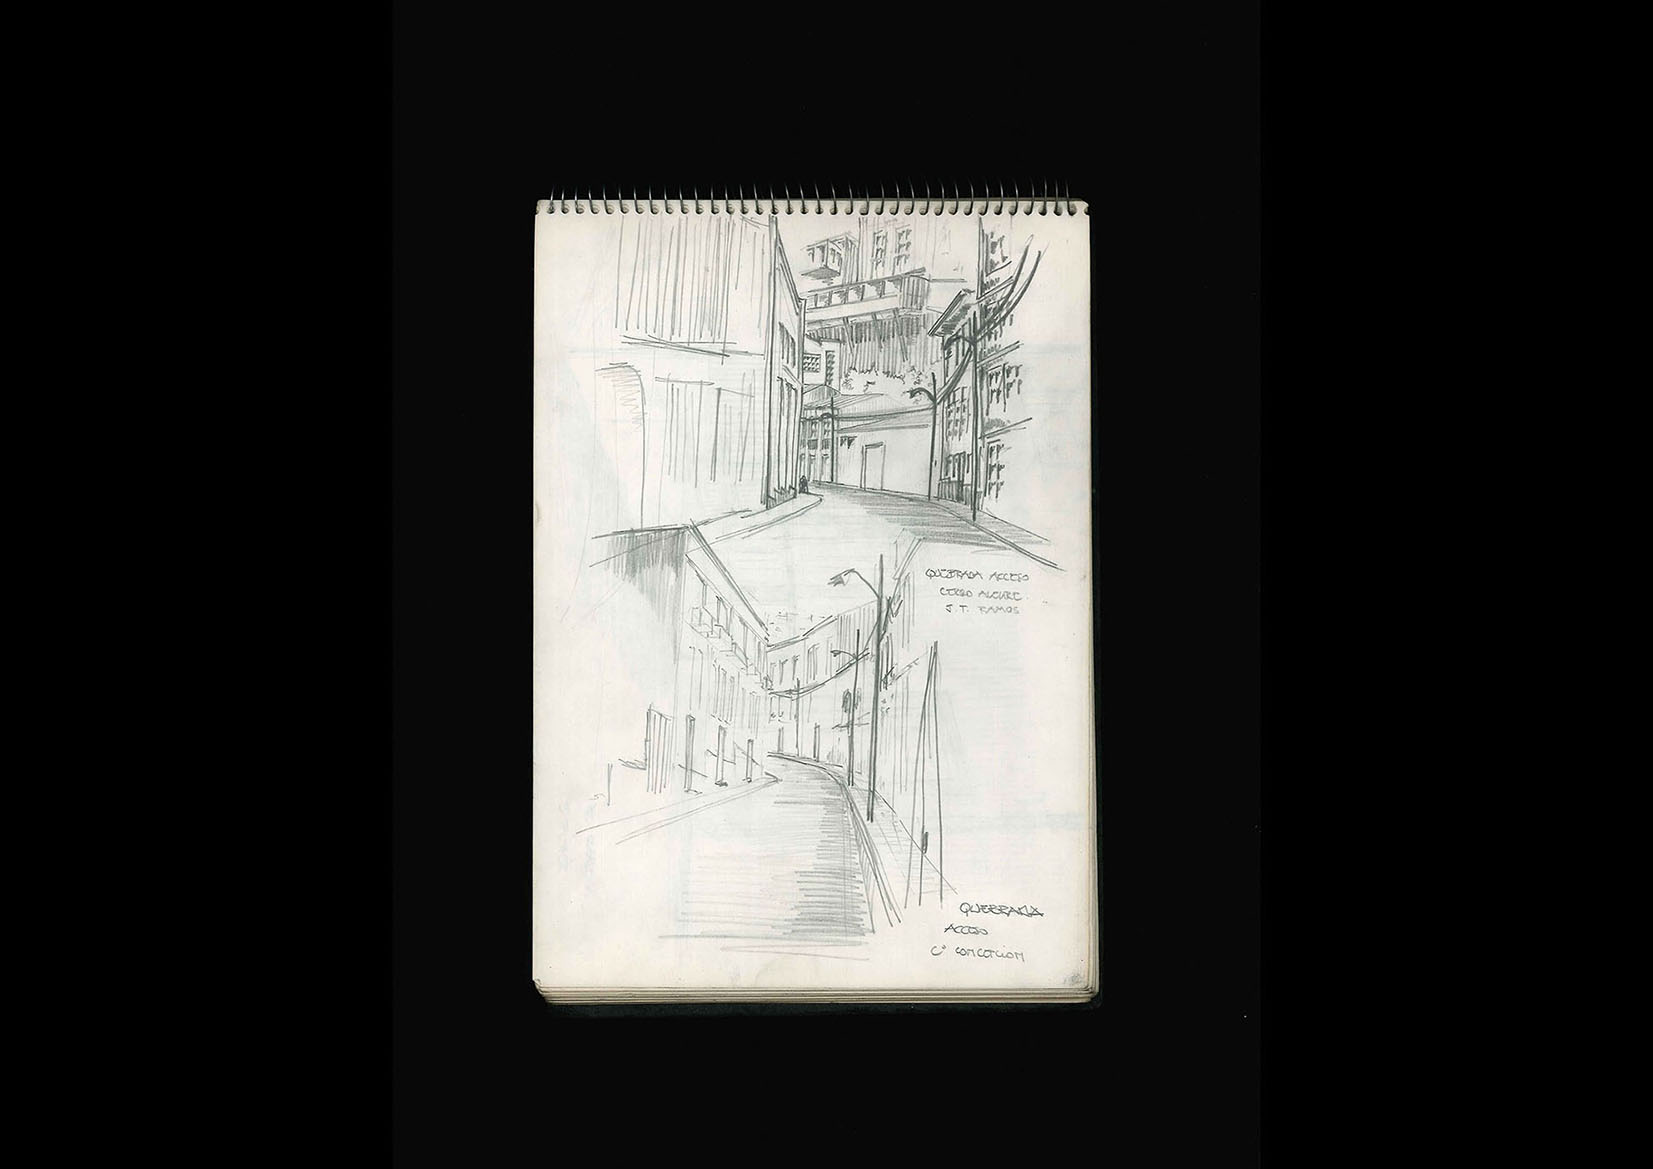 QUEBRADA ACCESO
CERRO ALEGRE.
J.T. RAMOS
QUEBRADA
ACCESO
Cº CONCEPCION